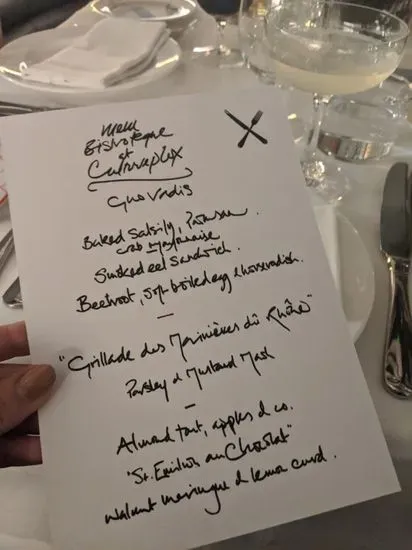 menu
Bistroteque
et
Culinaplex
Quo Vadis
Baked Salsify, Parmesan.
crab mayonnaise
Smoked eel sandwich.
Beetroot, soft boiled egg & horseradish.
—
"Grillade des Marinières du Rhône"
Parsley & Mustard Mash
—
Almond tart, apples & co.
"St. Emilion au Chocolat"
walnut meringue & lemon curd.